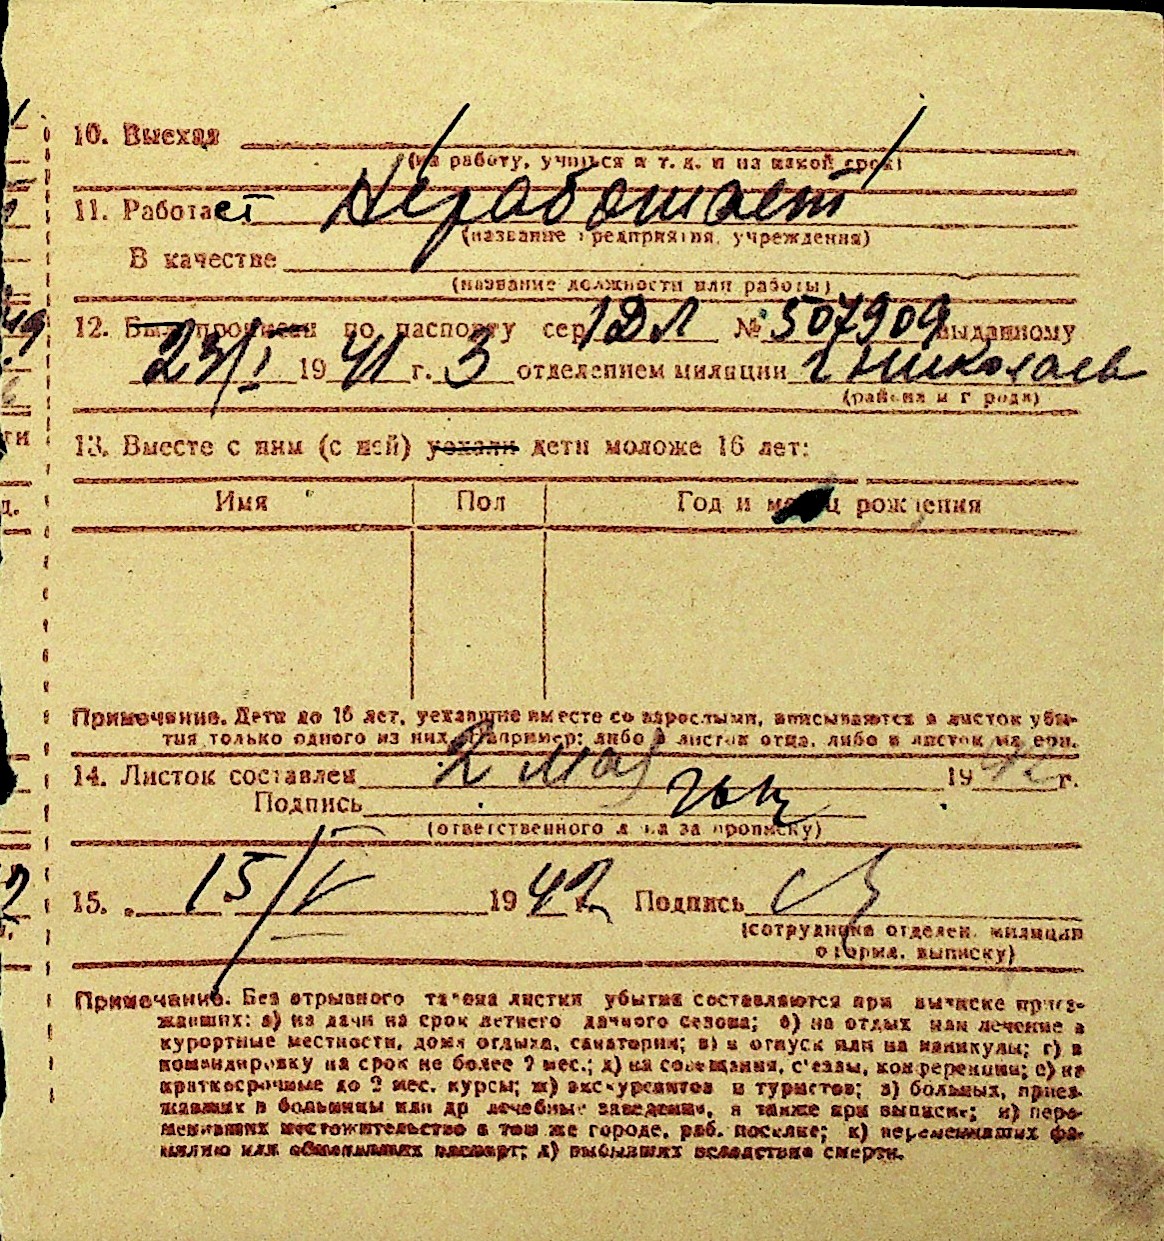 10. Выехал
(на работу, учиться и т. д. и на какой срок)
11. Работает Неработает
(название предприятия, учреждения)
В качестве
(название должности или работы)
12. Был прописан по паспорту сер. 1ДЛ № 507909 выданному
23/I 1941 г. 3 отделением милиции г Николаев
(района и города)
13. Вместе с ним (с ней) уехали дети моложе 16 лет:
Имя Пол Год и месяц рождения
Примечание. Дети до 16 лет, уехавшие вместе со взрослыми, вписываются в листок убы-
тия только одного из них. Например: либо в листок отца, либо в листок матери.
14. Листок составлен 2 мая 1942 г.
Подпись
(ответственного лица за прописку)
15. 15/V 1942 г. Подпись
(сотрудника отделен. милиции
оформл. выписку)
Примечание. Без отрывного талона листки убытия составляются при выписке приез-
жавших: а) на дачи на срок летнего дачного сезона; б) на отдых или лечение в
курортные местности, дома отдыха, санатории; в) в отпуск или на каникулы; г) в
командировку на срок не более 2 мес.; д) на совещания, съезды, конференции; е) на
краткосрочные до 2 мес. курсы; ж) экскурсантов и туристов; з) больных, приез-
жавших в больницы или др лечебные заведения, а также при выписке; и) пере-
менивших местожительство в том же городе, раб. поселке; к) переменивших фа-
милию или обменивших паспорт; л) выбывших вследствие смерти.